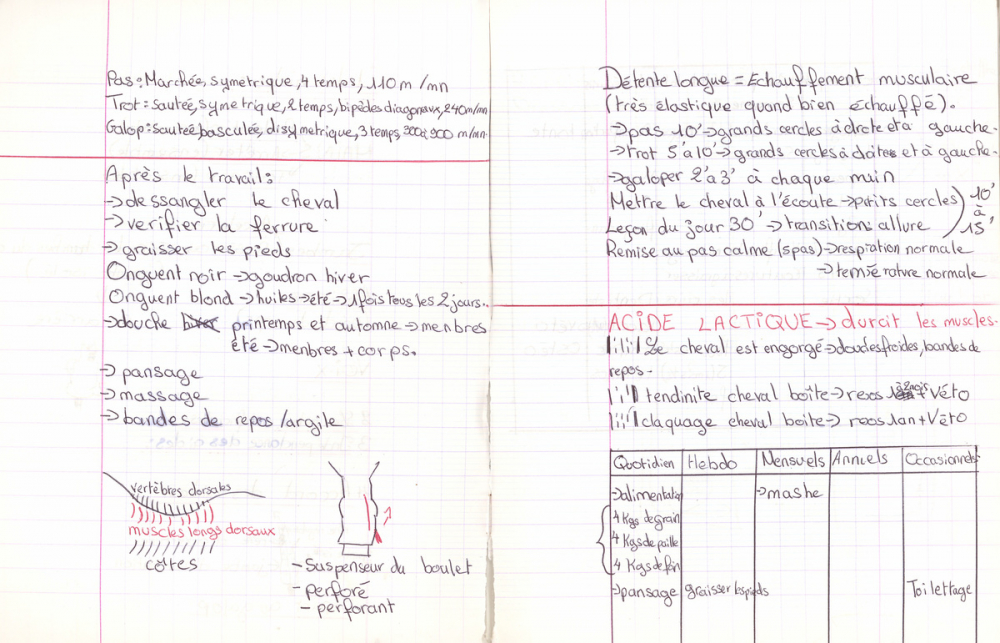 Pas : Marchée, symetrique, 4 temps, 110 m/mn
Trot : sautée, symetrique, 2 temps, bipèdes diagonaux, 240 m/mn
Galop : sautée basculée, disymetrique, 3 temps, 300 à 900 m/mn
Après le travail :
→ dessangler le cheval
→ verifier la ferrure
→ graisser les pieds
Onguent noir → goudron hiver
Onguent blond → huiles → été → 1 fois tous les 2 jours..
→ douche printemps et automne → menbres
été → menbres + corps.
→ pansage
→ massage
→ bandes de repos / argile
vertèbres dorsales
muscles longs dorsaux
côtes
- Suspenseur du boulet
- perforé
- perforant
Détente longue = Echauffement musculaire
(très élastique quand bien échauffé).
→ pas 10' → grands cercles à droite et à gauche.
→ trot 5' à 10' → grands cercles à doites et à gauche.
→ galoper 2' à 3' à chaque main
Mettre le cheval à l'écoute → petits cercles
Leçon du jour 30' → transition allure
) 10' à 15'
Remise au pas calme (5pas) → respiration normale
→ température normale
ACIDE LACTIQUE → durcit les muscles.
Le cheval est engorgé → douches froides, bandes de
repos.
tendinite cheval boîte → repos + Véto
claquage cheval boite → repos 1an + Véto
Quotidien Hebdo Mensuels Annuels Occasionnels
→ alimentation → mashe
4 Kgs de grain
4 Kgs de paille
4 Kgs de foin
→ pansage graisser les pieds Toilettage